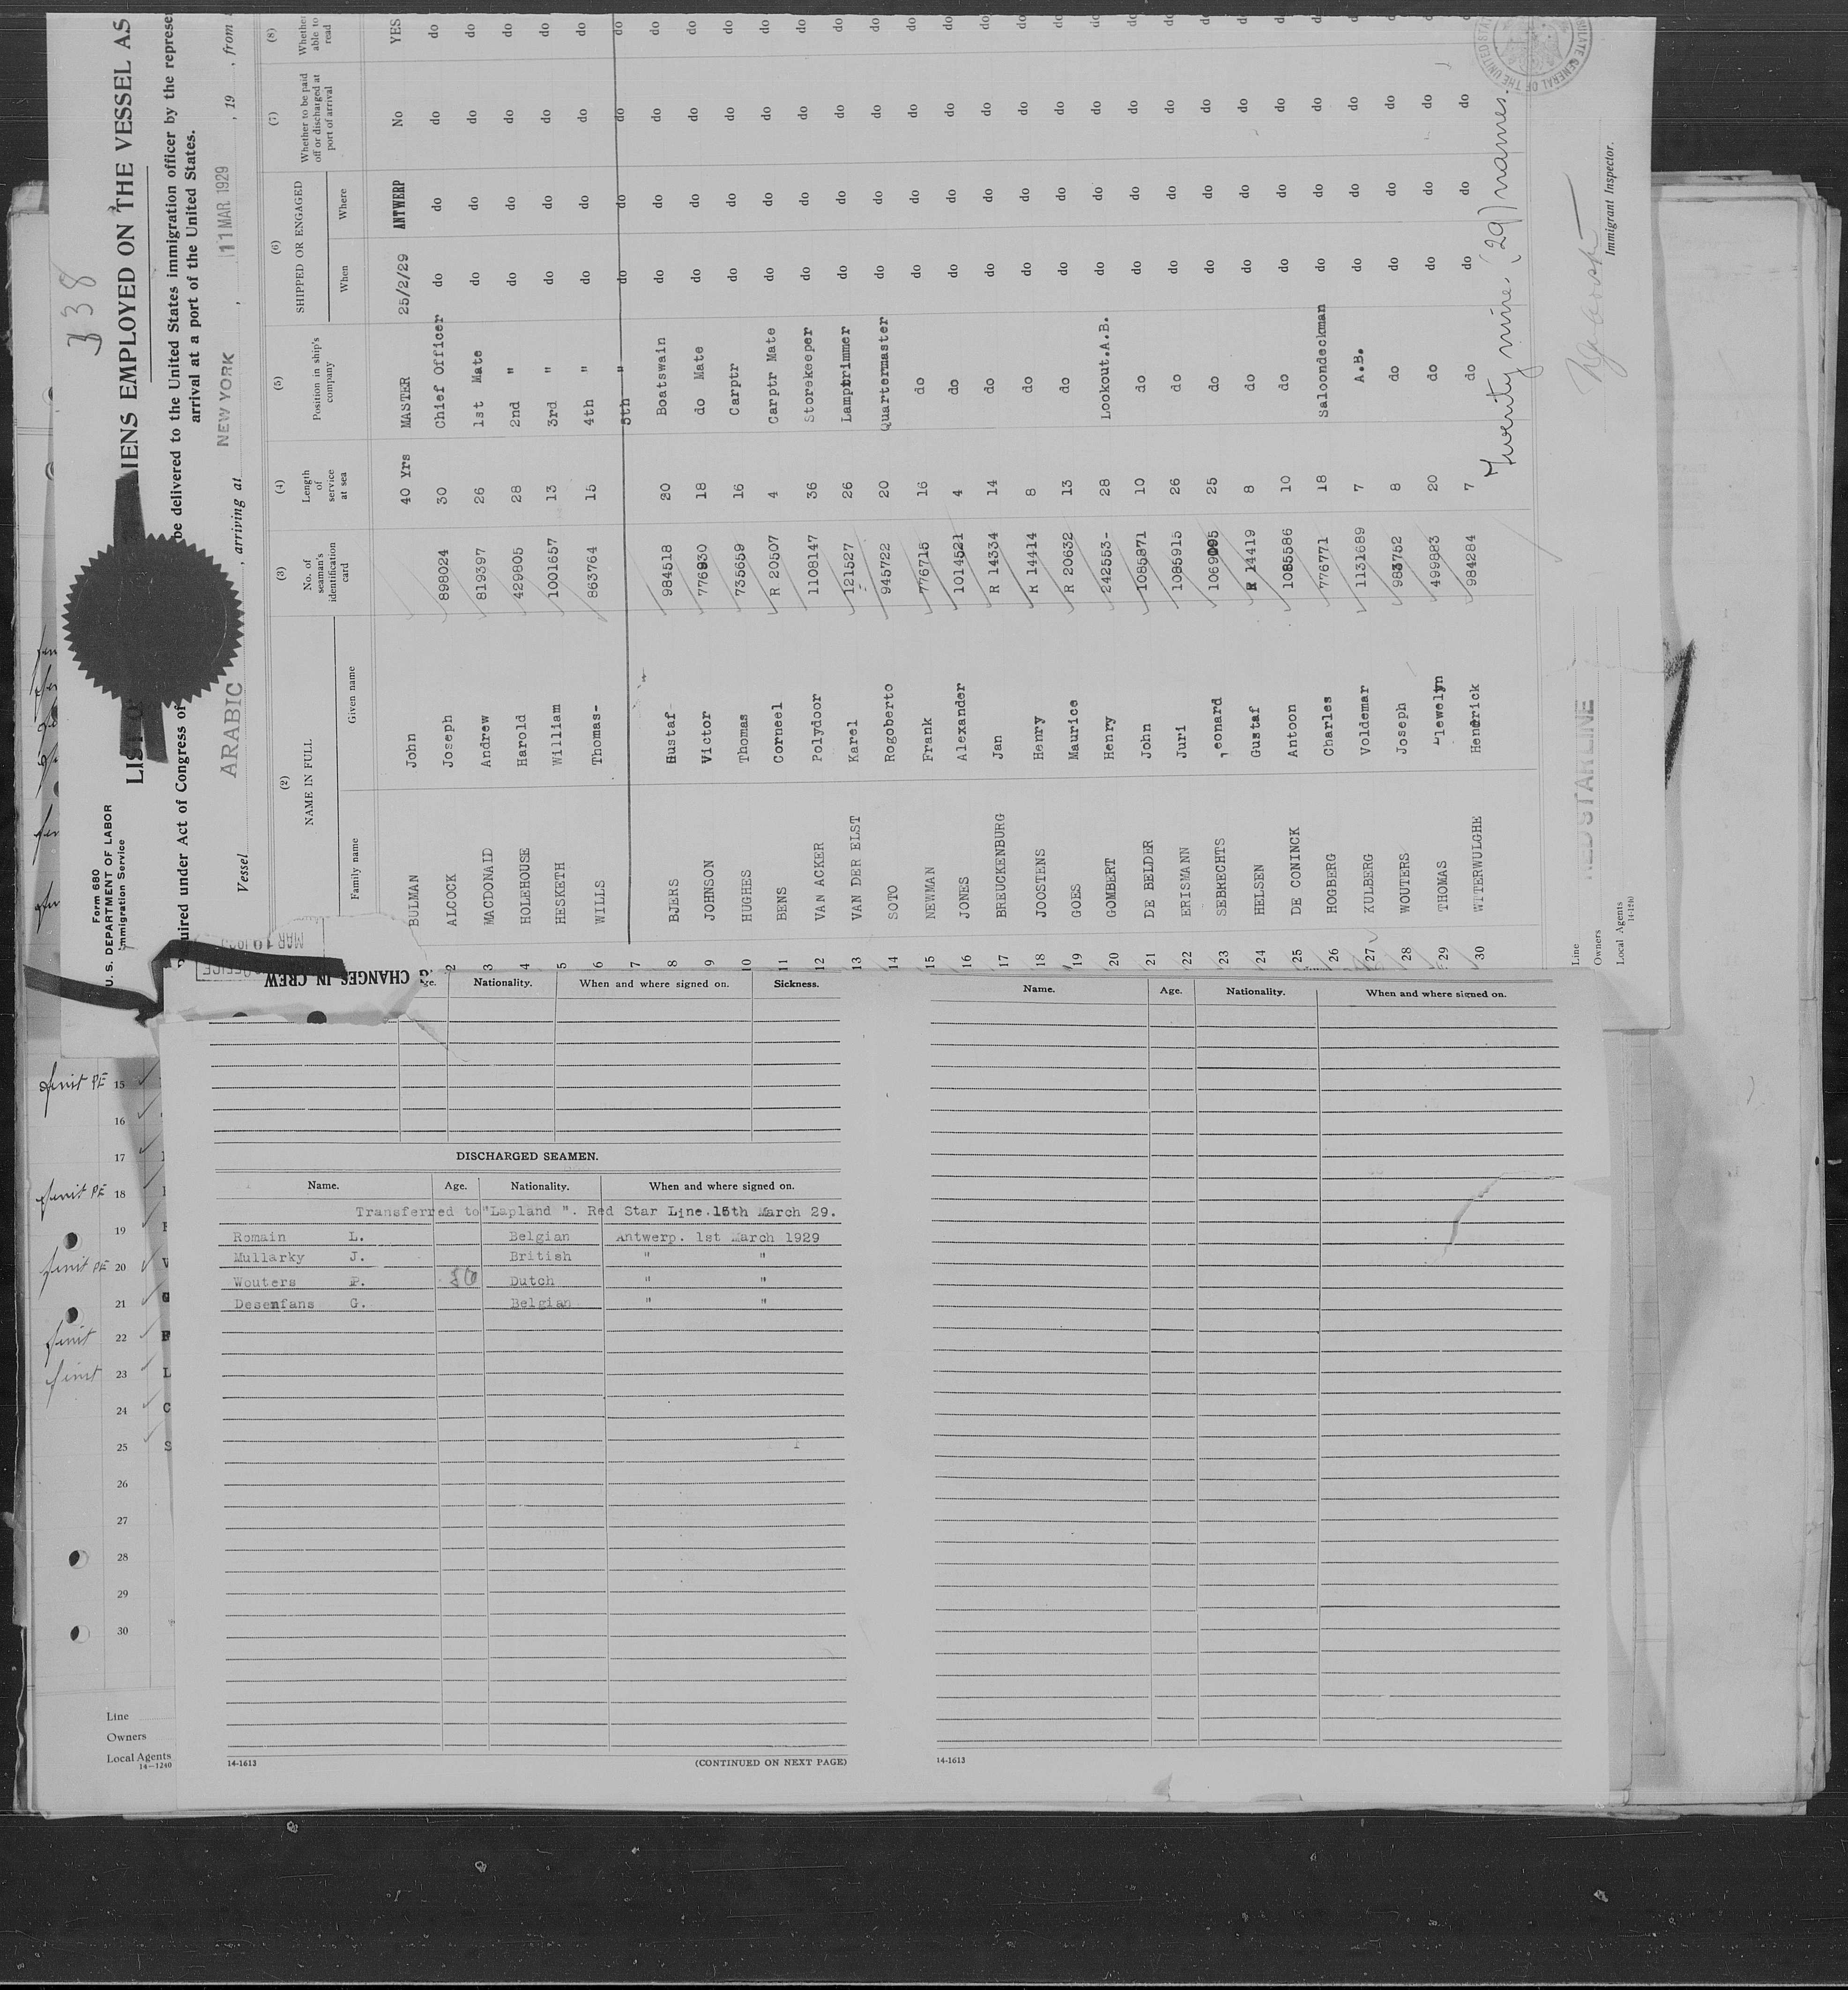 338
Form 680
U. S. DEPARTMENT OF LABOR
Immigration Service
IENS EMPLOYED ON THE VESSEL AS
uired under Act of Congress of
be delivered to the United States immigration officer by the represe
arrival at a port of the United States.
Vessel ARABIC , arriving at NEW YORK , 11 MAR 1929 , 19 , from
(2) (3) (4) (5) (6) (7) (8)
NAME IN FULL
Family name Given name
No. of seaman's identification card
Length of service at sea
Position in ship's company
SHIPPED OR ENGAGED
When Where
Whether to be paid off or discharged at port of arrival
Whether able to read
BULMAN John 40 Yrs MASTER 25/2/29 ANTWERP No YES
2 ALCOCK Joseph 898024 30 Chief Officer do do do do
3 MACDONALD Andrew 819397 26 1st Mate do do do do
4 HOLEHOUSE Harold 429805 28 2nd " do do do do
5 HESKETH William 1001657 13 3rd " do do do do
6 WILLS Thomas- 863764 15 4th " do do do do
7 5th " do do do do
8 BJERS Gustaf 984518 20 Boatswain do do do do
9 JOHNSON Victor 776930 18 do Mate do do do do
10 HUGHES Thomas 735659 16 Carptr do do do do
11 BENS Corneel R 20507 4 Carptr Mate do do do do
12 VAN ACKER Polydoor 1108147 36 Storekeeper do do do do
13 VAN DER ELST Karel 121527 26 Lamptrimmer do do do do
14 SOTO Rogoberto 945722 20 Quartermaster do do do do
15 NEWMAN Frank 776715 16 do do do do do
16 JONES Alexander 1014521 4 do do do do do
17 BREUCKENBURG Jan R 14334 14 do do do do do
18 JOOSTENS Henry R 14414 8 do do do do do
19 GOES Maurice R 20632 13 do do do do do
20 GOMBERT Henry 242553- 28 Lookout.A.B. do do do do
21 DE BELDER John 1085871 10 do do do do do
22 ERISMANN Juri 1085915 26 do do do do do
23 SEBRECHTS Leonard 1069095 25 do do do do do
24 HELSEN Gustaf R 14419 8 do do do do do
25 DE CONINCK Antoon 1085586 10 do do do do do
26 HOGBERG Charles 776771 18 Saloondeckman do do do do
27 KULBERG Voldemar 1131689 7 A.B. do do do do
28 WOUTERS Joseph 983752 8 do do do do do
29 THOMAS Llewelyn 499883 20 do do do do do
30 WITTERWULGHE Hendrick 984284 7 do do do do do
Twenty nine (29) names.
Line RED STAR LINE
Owners
Local Agents
14-1240
Immigrant Inspector.
CHANGES IN CREW
Nationality. When and where signed on. Sickness.
DISCHARGED SEAMEN.
Name. Age. Nationality. When and where signed on.
Transferred to "Lapland ". Red Star Line.15th March 29.
Romain L. Belgian Antwerp. 1st March 1929
Mullarky J. British " "
Wouters P. 50 Dutch " "
Desenfans G. Belgian " "
14-1613 (CONTINUED ON NEXT PAGE)
Name. Age. Nationality. When and where signed on.
14-1613
15
16
17
18
19
20
21
22
23
24
25
26
27
28
29
30
Line
Owners
Local Agents
14-1240